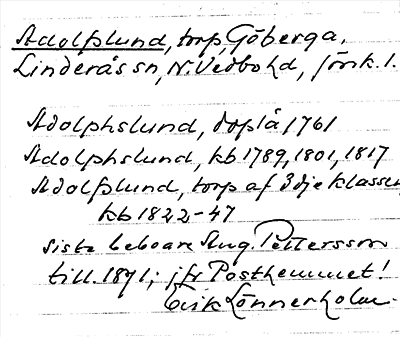 Adolfslund, torp, Göberga,
Linderås sn, N. Vedbo hd, Jönk. l.
Adolphslund, doplä 1761
Adolphslund, kb 1789, 1801, 1817
Adolfslund, torp af 3dje klassen
kb 1822-47
siste beboare Aug. Pettersson
till 1891; jfr Posthemmet!
Erik Lönnerholm.